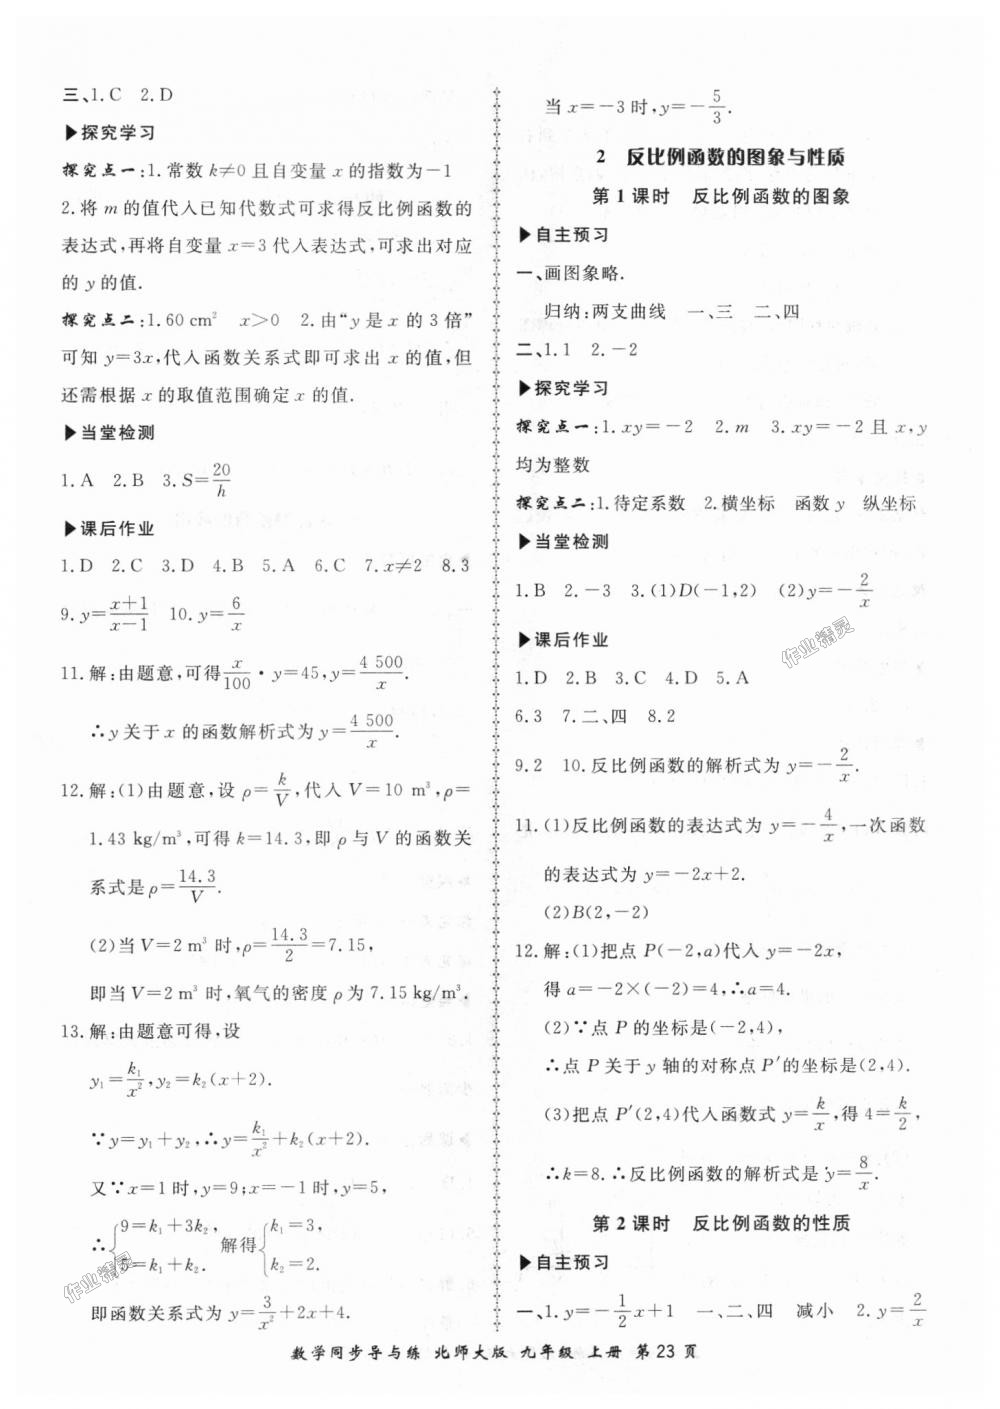 三、1.C 2.D
▶探究学习
探究点一:1.常数 k≠0 且自变量 x 的指数为-1
2.将 m 的值代入已知代数式可求得反比例函数的
表达式,再将自变量 x=3 代入表达式,可求出对应
的 y 的值.
探究点二:1.60 cm² x>0 2.由“y 是 x 的 3 倍”
可知 y=3x,代入函数关系式即可求出 x 的值,但
还需根据 x 的取值范围确定 x 的值.
▶当堂检测
1.A 2.B 3.S=20/h
▶课后作业
1.D 2.C 3.D 4.B 5.A 6.C 7.x≠2 8.3
9.y=(x+1)/(x-1) 10.y=6/x
11.解:由题意,可得 x/100·y=45,y=4 500/x.
∴y 关于 x 的函数解析式为 y=4 500/x.
12.解:(1)由题意,设 ρ=k/V,代入 V=10 m³,ρ=
1.43 kg/m³,可得 k=14.3,即 ρ 与 V 的函数关
系式是 ρ=14.3/V.
(2)当 V=2 m³ 时,ρ=14.3/2=7.15,
即当 V=2 m³ 时,氧气的密度 ρ 为 7.15 kg/m³.
13.解:由题意可得,设
y₁=k₁/x²,y₂=k₂(x+2).
∵y=y₁+y₂,∴y=k₁/x²+k₂(x+2).
又∵x=1 时,y=9;x=-1 时,y=5,
∴{9=k₁+3k₂, 5=k₁+k₂. 解得{k₁=3, k₂=2.
即函数关系式为 y=3/x²+2x+4.
当 x=-3 时,y=-5/3.
2 反比例函数的图象与性质
第 1 课时 反比例函数的图象
▶自主预习
一、画图象略.
归纳:两支曲线 一、三 二、四
二、1.1 2.-2
▶探究学习
探究点一:1.xy=-2 2.m 3.xy=-2 且 x,y
均为整数
探究点二:1.待定系数 2.横坐标 函数 y 纵坐标
▶当堂检测
1.B 2.-3 3.(1)D(-1,2) (2)y=-2/x
▶课后作业
1.D 2.B 3.C 4.D 5.A
6.3 7.二、四 8.2
9.2 10.反比例函数的解析式为 y=-2/x.
11.(1)反比例函数的表达式为 y=-4/x,一次函数
的表达式为 y=-2x+2.
(2)B(2,-2)
12.解:(1)把点 P(-2,a)代入 y=-2x,
得 a=-2×(-2)=4,∴a=4.
(2)∵点 P 的坐标是(-2,4),
∴点 P 关于 y 轴的对称点 P′的坐标是(2,4).
(3)把点 P′(2,4)代入函数式 y=k/x,得 4=k/2,
∴k=8.∴反比例函数的解析式是 y=8/x.
第 2 课时 反比例函数的性质
▶自主预习
一、1.y=-1/2x+1 一、二、四 减小 2.y=2/x
数学同步导与练 北师大版 九年级 上册 第 23 页
作业精灵
作业精灵